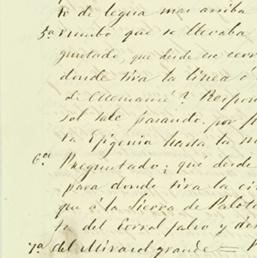 to de legua mas arriba
5ª rumbo que se llevaba
guntado, que desde ese cerr
donde tira la linea ó
di
sol sale pasando por
ta Epigenia hasta la m
6ª Preguntado; que desde
para donde tira la
que á la Sierra de Palot
to del Corral falso y de
7ª del Mirasol grande =